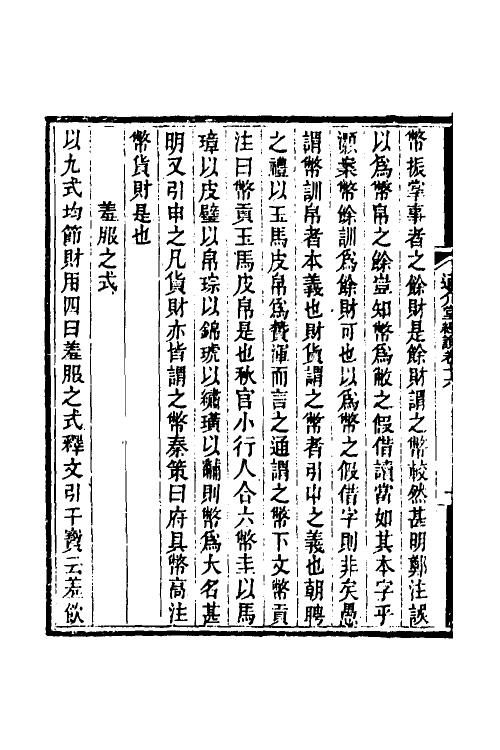 幣振掌事者之餘財是餘財謂之幣較然甚明鄭注誤
以爲幣帛之餘豈知幣爲敝之假借讀當如其本字乎
灝案幣餘訓爲餘財可也以爲幣之假借字則非矣愚
謂幣訓帛者本義也財貨謂之幣者引申之義也朝聘
之禮以玉馬皮帛爲贄渾而言之通謂之幣下文幣貢
注曰幣貢玉馬皮帛是也秋官小行人合六幣圭以馬
璋以皮璧以帛琮以錦琥以繡璜以黼則幣爲大名甚
明又引申之凡貨財亦皆謂之幣秦策曰府具幣高注
幣貨財是也
羞服之式
以九式均節財用四曰羞服之式釋文引干寶云羞飲
通介堂經說卷十六